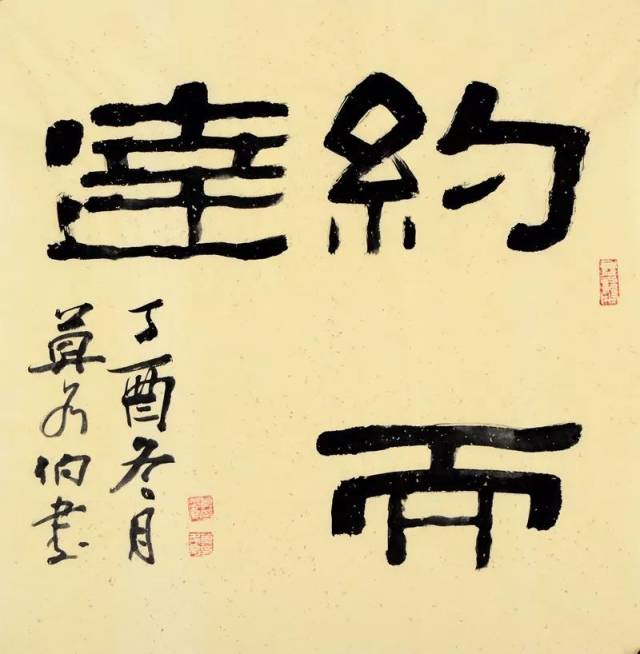 約而
達
丁酉冬月
莫各伯書